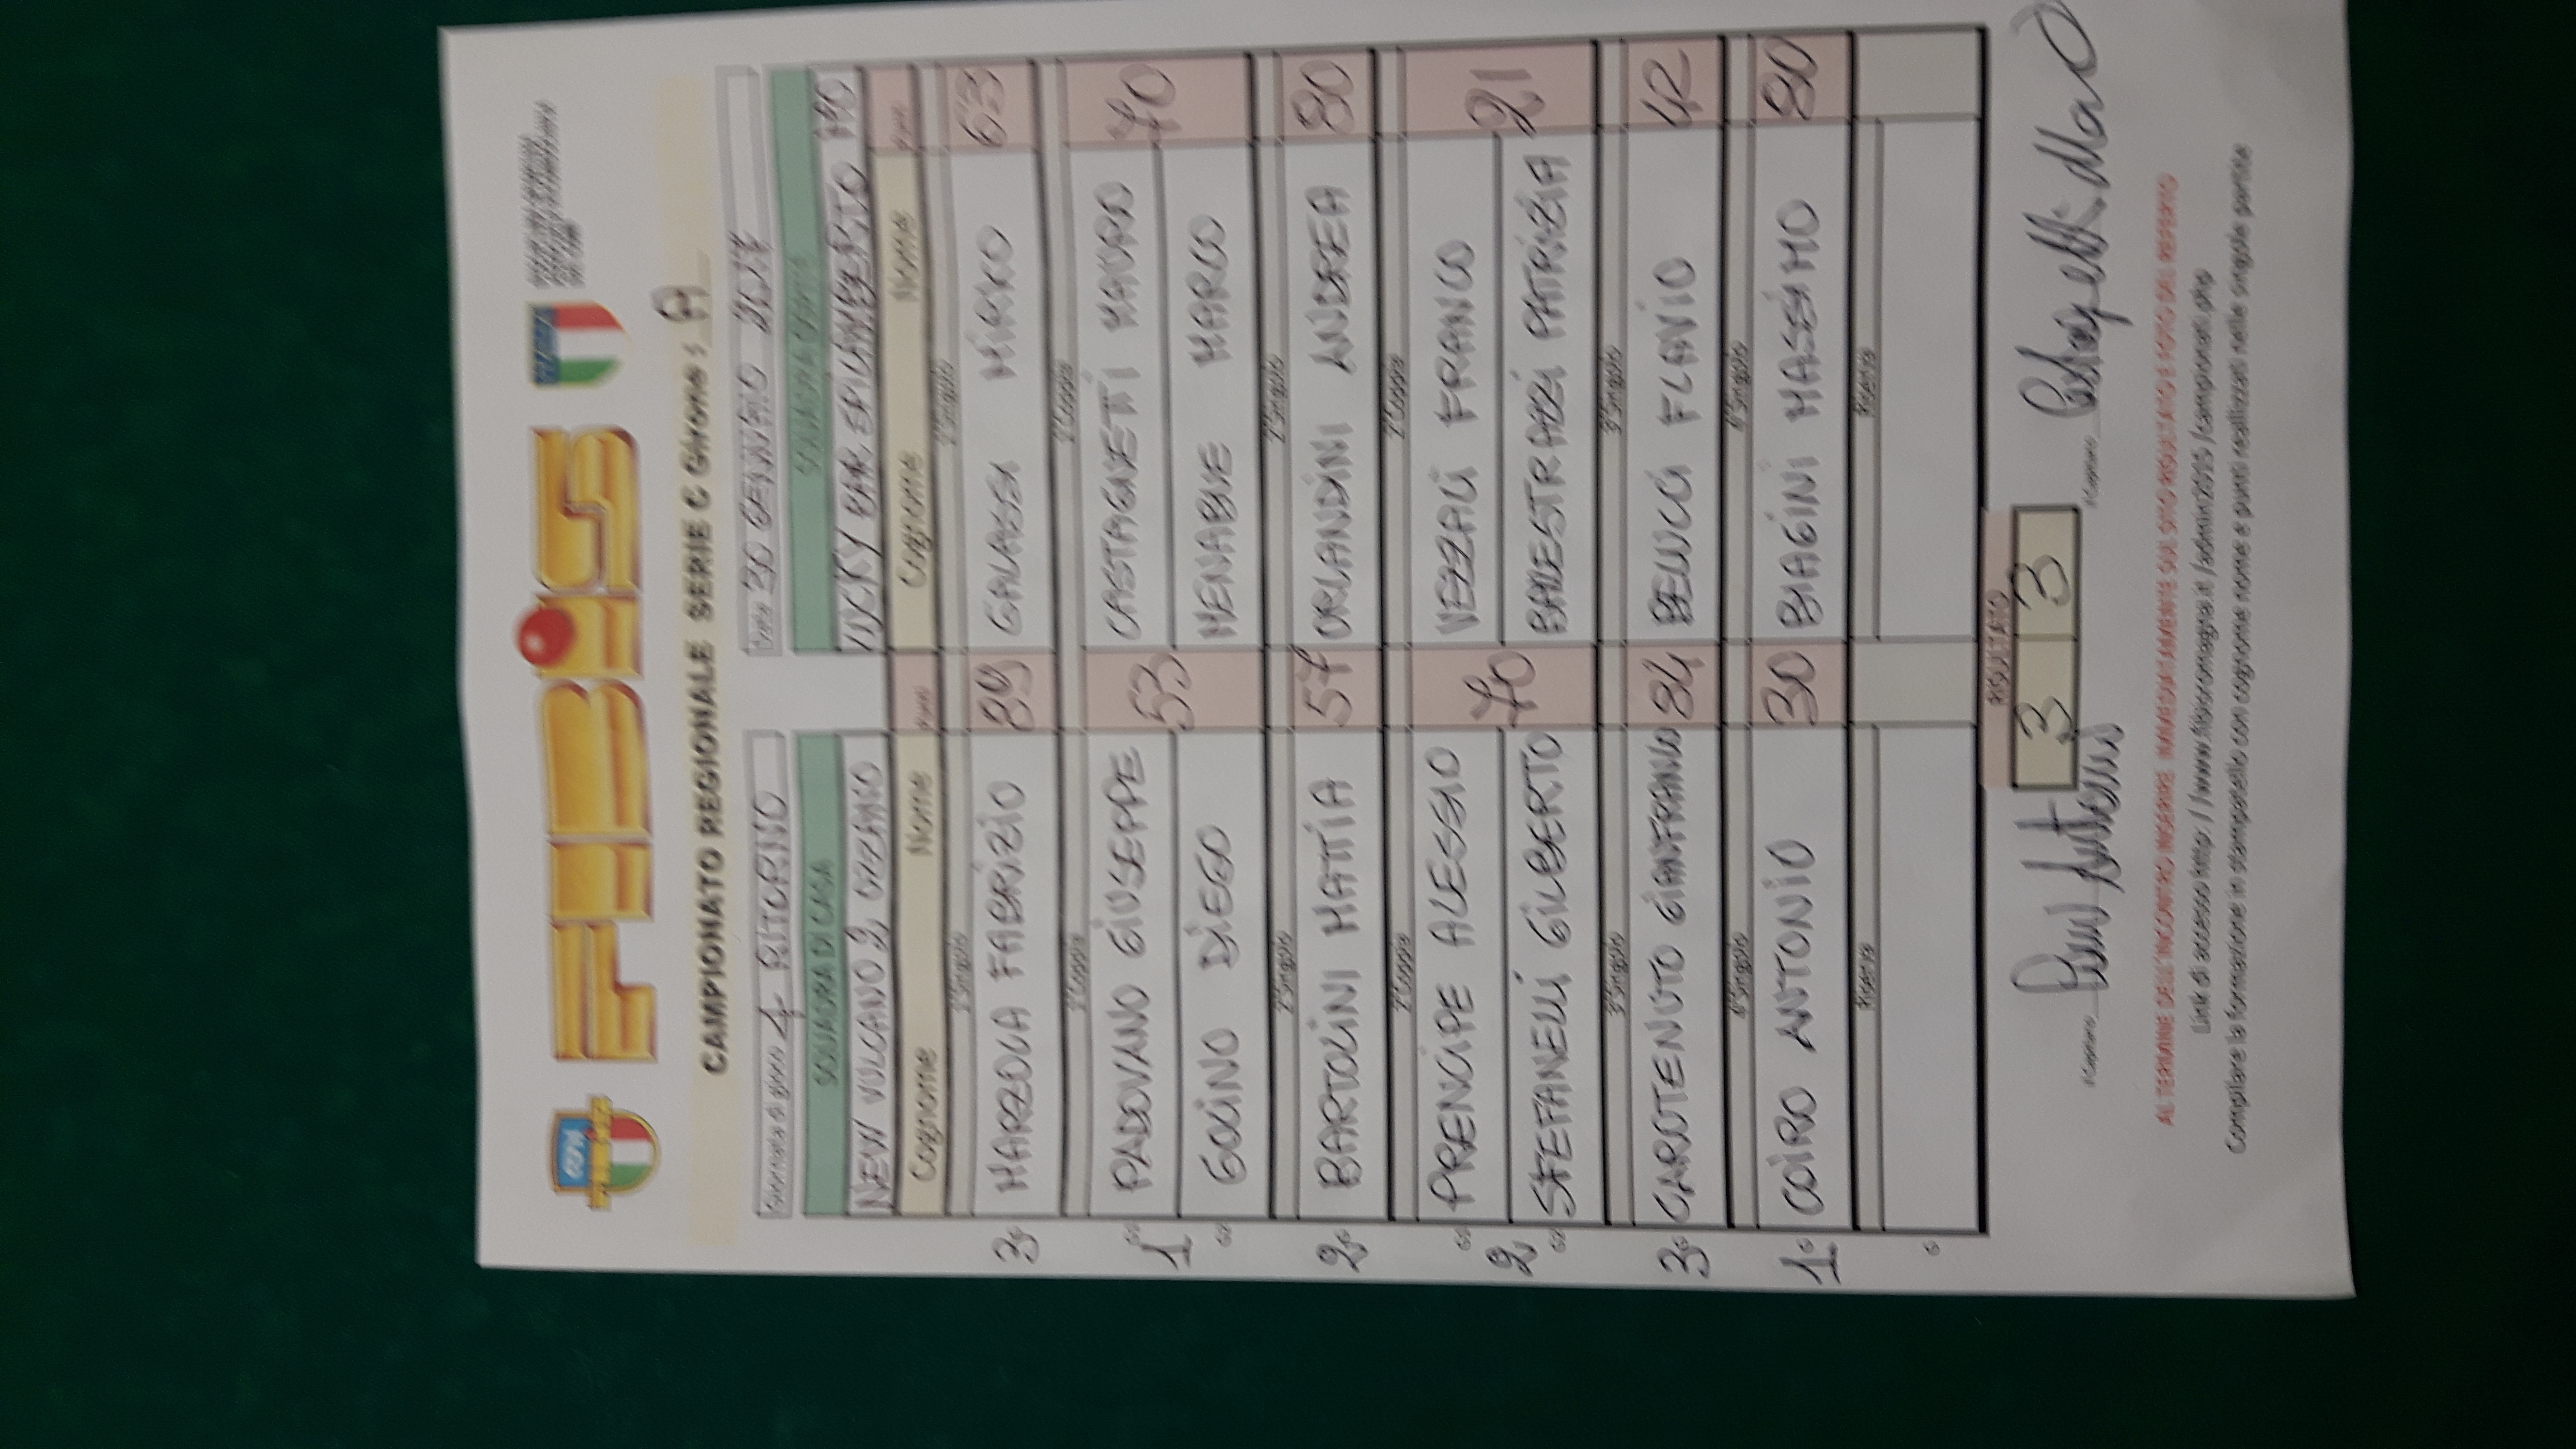 FIBiS
CAMPIONATO REGIONALE SERIE C Girone: A
Giornata di gioco 4 RITORNO
Data 30 GENNAIO 2017
SQUADRA DI CASA
SQUADRA OSPITE
NEW VULCANO 2 OZZANO
LUCKY BAR SPILAMBERTO MO
Cognome Nome punti Cognome Nome punti
1°Singolo 1°Singolo
3 MARZOLA FABRIZIO 89 GALASSI MIRKO 63
1°Coppia 1°Coppia
PADOVANO GIUSEPPE CASTAGNETTI MAURO
1 53 70
GOCINO DIEGO MENABUE MARCO
2°Singolo 2°Singolo
2 BARTOLINI MATTIA 57 ORLANDINI ANDREA 80
2°Coppia 2°Coppia
PRENCIPE ALESSIO VEZZALI FRANCO
2 70 21
STEFANELLI GILBERTO BALESTRAZZI PATRIZIA
3°Singolo 3°Singolo
3 CAROTENUTO GIANFRANCO 84 BELLUCCI FLAVIO 42
4°Singolo 4°Singolo
1 COIRO ANTONIO 30 BIAGINI MASSIMO 80
Riserva Riserva
RISULTATO
3 3
Il Capitano Il Capitano
AL TERMINE DELL'INCONTRO INSERIRE IMMEDIATAMENTE SUL SITO RISULTATO E FOTO DEL REFERTO
Link di accesso http://www.fibisromagna.it/admin2015/campionati.php
Compilare la formazione in stampatello con cognome nome e punti realizzati nelle singole partite